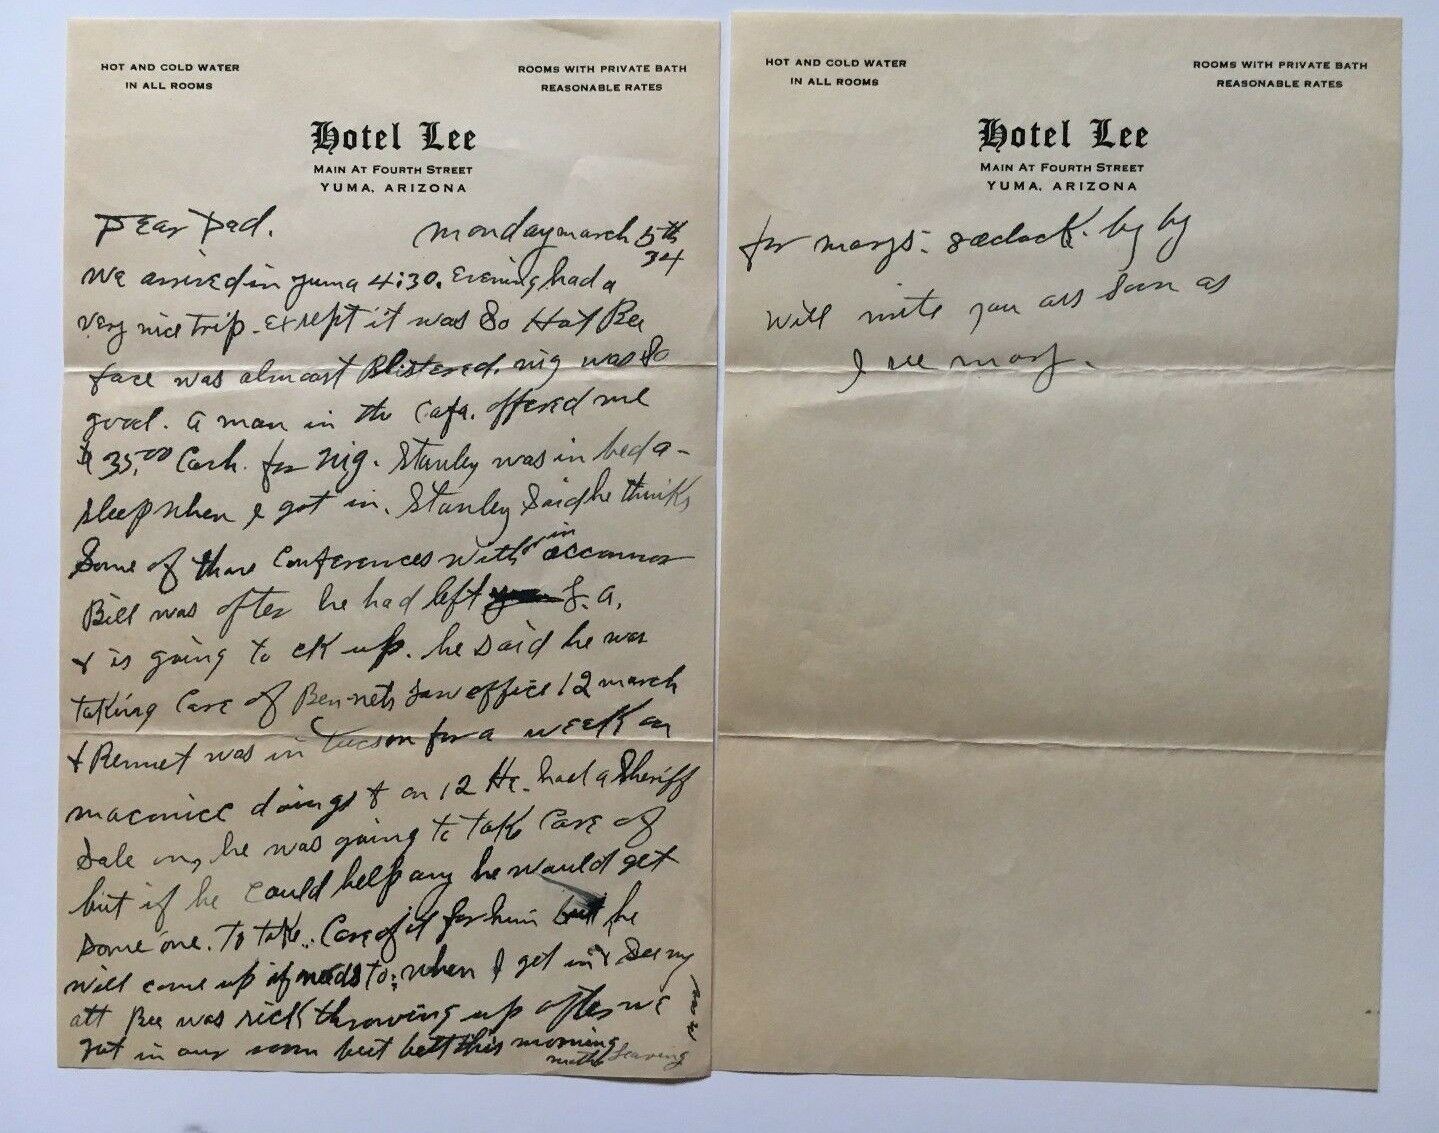 HOT AND COLD WATER
IN ALL ROOMS
ROOMS WITH PRIVATE BATH
REASONABLE RATES
Hotel Lee
MAIN AT FOURTH STREET
YUMA, ARIZONA
Dear Dad. Monday march 5th
34
We arrived in yuma 4:30. Evening had a
very nice trip. except it was so Hot Bee
face was almost Blistered. nig was so
good. a man in the Cafa. offered me
$35.00 Cash. for nig. Stanley was in bed a-
sleep when I got in. Stanley Said he thinks
Some of thare Conferences with in oconnor
Bill was after he had left L.A.
& is going to ck up. he said he was
taking Care of Ben-nets Law office 12 march
& Bennet was in Tucson for a week on
maconice doings & on 12 He. had a Sheriff
Sale on, he was going to take Care of
but if he Could help any he would get
Some one. to take.. Care of it for him but he
will come up if needs to: when I get in & See my
att Bee was sick throwing up after we
got in our room but bett this morning
Leaving
now
for marys. 8 oclock. by by
Will write you ass Soon as
I see mary.
HOT AND COLD WATER
IN ALL ROOMS
ROOMS WITH PRIVATE BATH
REASONABLE RATES
Hotel Lee
MAIN AT FOURTH STREET
YUMA, ARIZONA